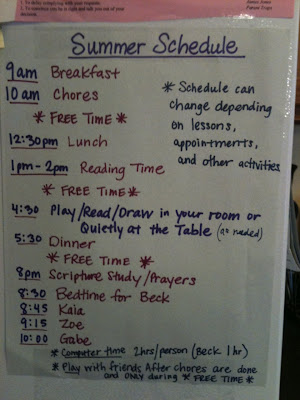 Summer Schedule
9am Breakfast
10am Chores
* FREE TIME *
12:30pm Lunch
1pm - 2pm Reading Time
* FREE TIME *
4:30 Play/Read/Draw in your room or
Quietly at the Table (as needed)
5:30 Dinner
* FREE TIME *
8pm Scripture Study/Prayers
8:30 Bedtime for Beck
8:45 Kaia
9:15 Zoe
10:00 Gabe
* Computer time 2hrs/person (Beck 1hr)
* Play with friends After chores are done
and only during * FREE TIME *
* Schedule can
change depending
on lessons,
appointments,
and other activities